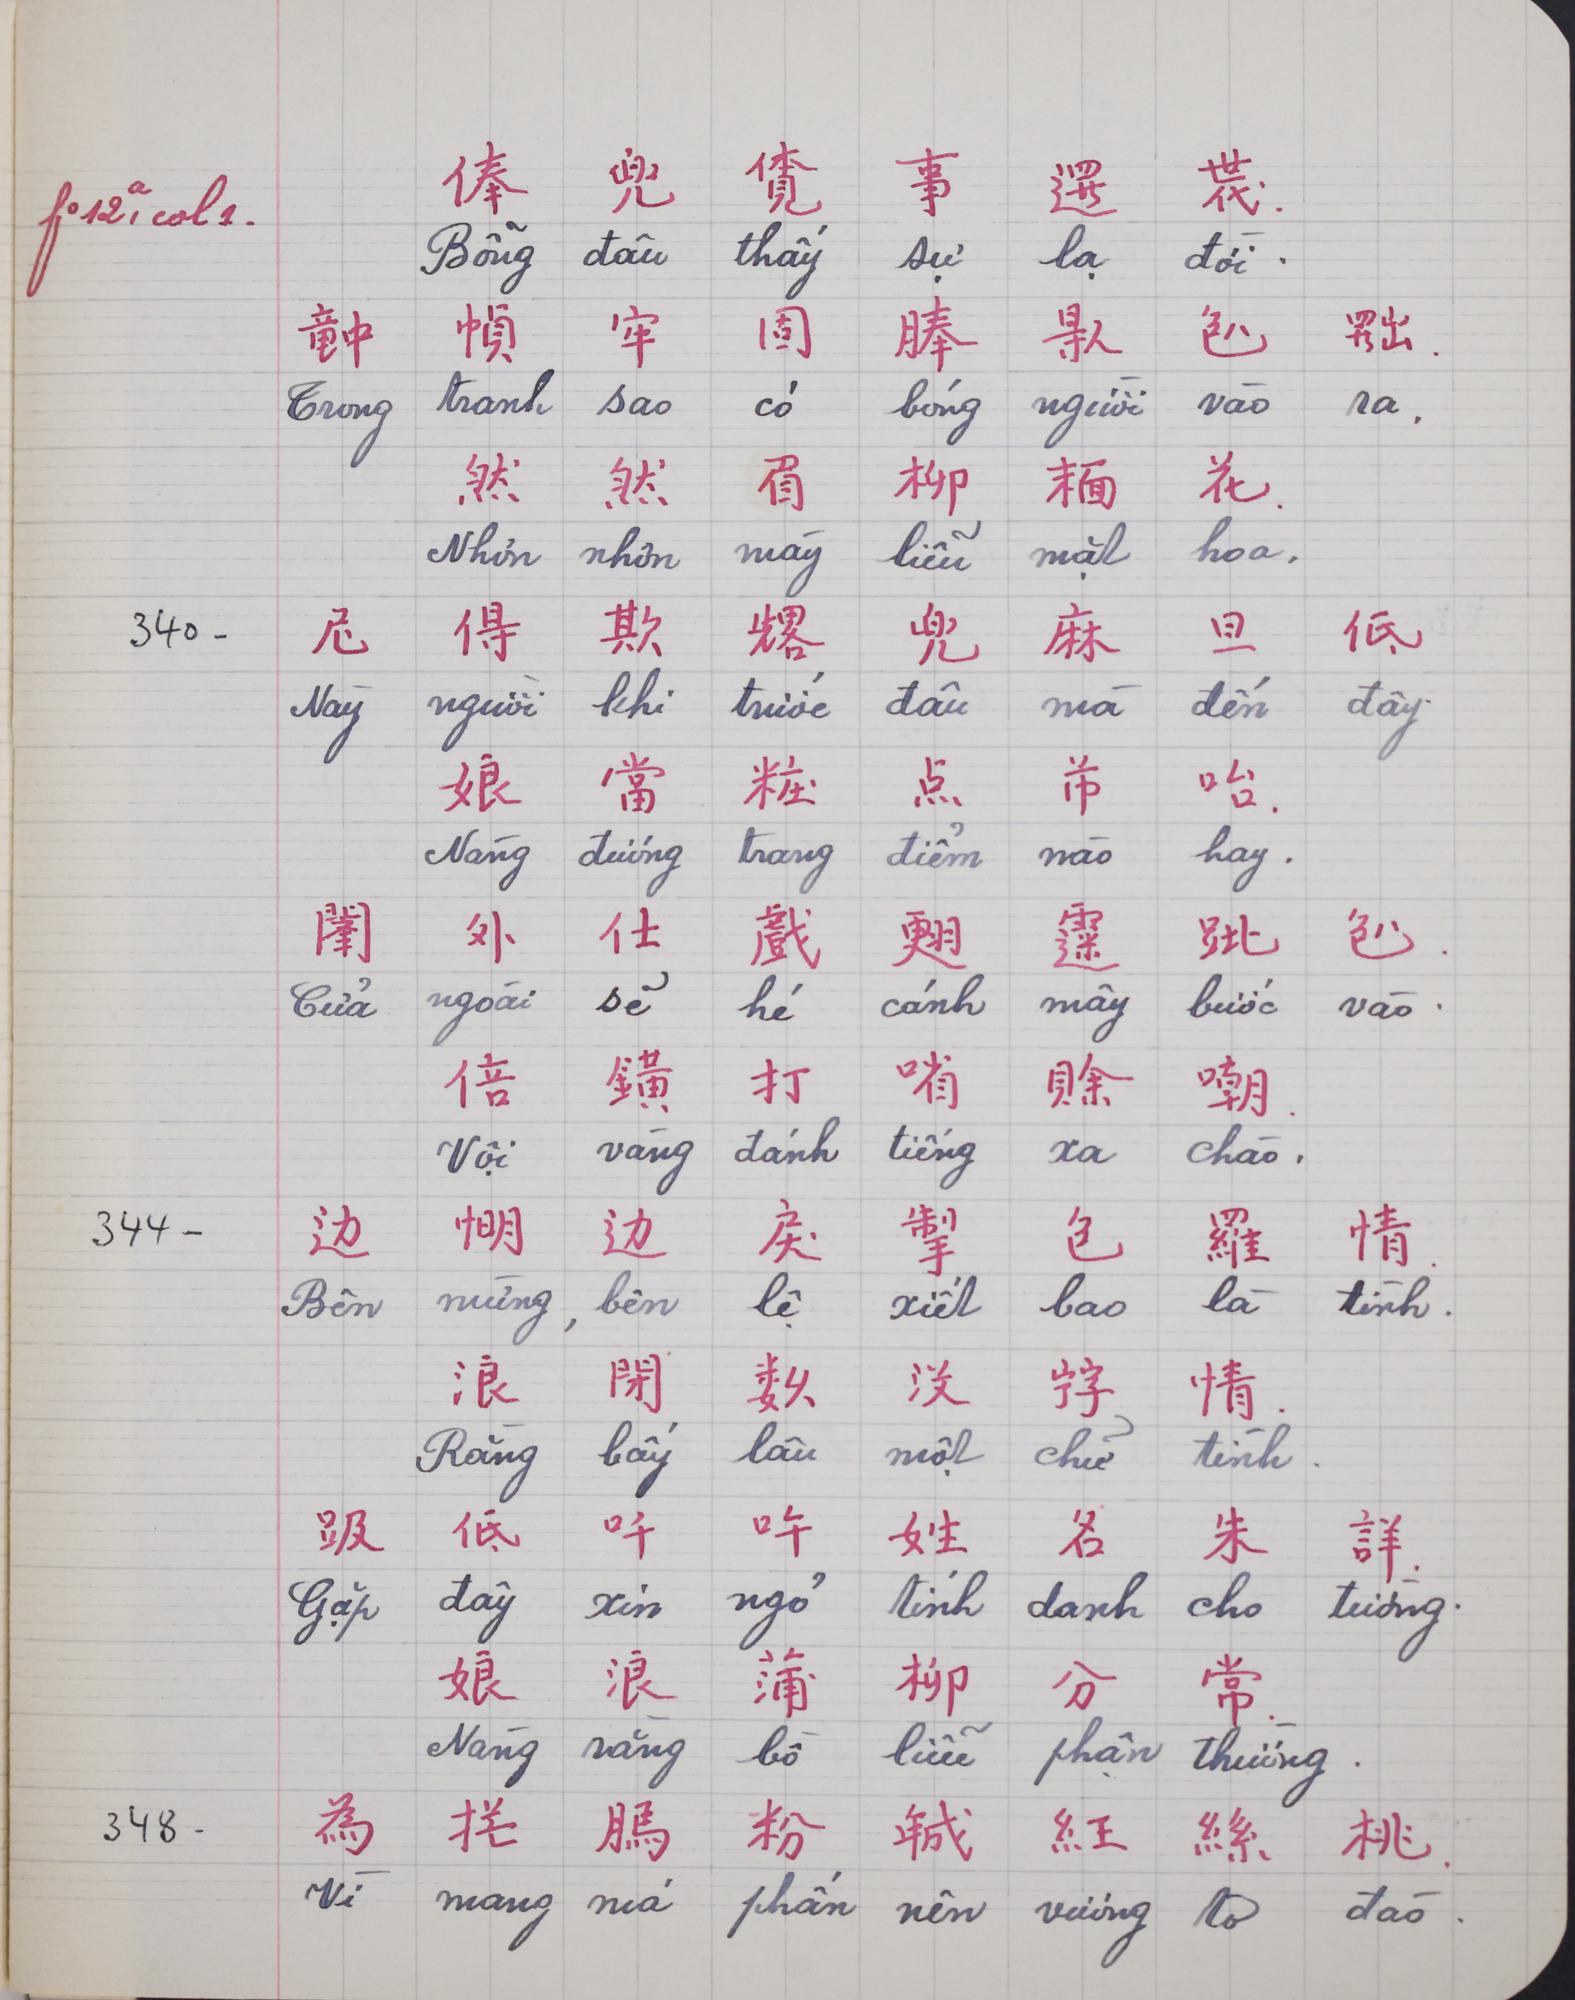 fº 12ª, col 1.
俸 兜 𧡊 事 邏 𠁀.
Bỗng đâu thấy sự lạ đời.
𥪝 幀 牢 固 𦢗 𠊛 𠓨 𦋦.
Trong tranh sao có bóng người vào ra.
然 然 眉 柳 𩈘 花.
Nhơn nhơn mày liễu mặt hoa.
340 - 尼 得 欺 𠓀 兜 麻 旦 低
Này người khi trước đâu mà đến đây
娘 當 粧 点 芇 咍.
Nàng đương trang điểm nào hay.
𨷶 外 仕 戲 𦑃 𩄲 𨀈 𠓨.
Cửa ngoài sẽ hé cánh mây bước vào.
倍 鐄 打 㗂 賒 嘲.
Vội vàng đánh tiếng xa chào.
344 - 边 𢜏 边 戾 掣 包 羅 情.
Bên mừng, bên lệ xiết bao là tình.
浪 閉 数 没 𡨸 情.
Rằng bấy lâu một chữ tình.
趿 低 吀 𠳨 姓 名 朱 詳.
Gặp đây xin ngỏ tính danh cho tường.
娘 浪 蒲 柳 分 常.
Nàng rằng bồ liễu phận thường.
348 - 為 𢬄 𦟐 粉 𢧚 紝 絲 桃.
Vì mang má phấn nên vương tơ đào.